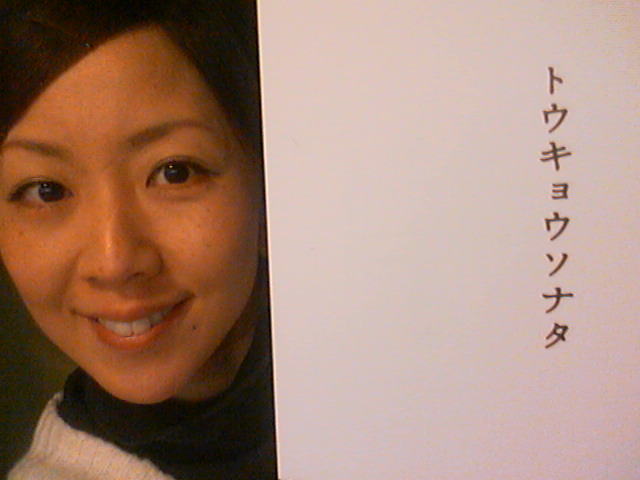 トウキョウソナタ